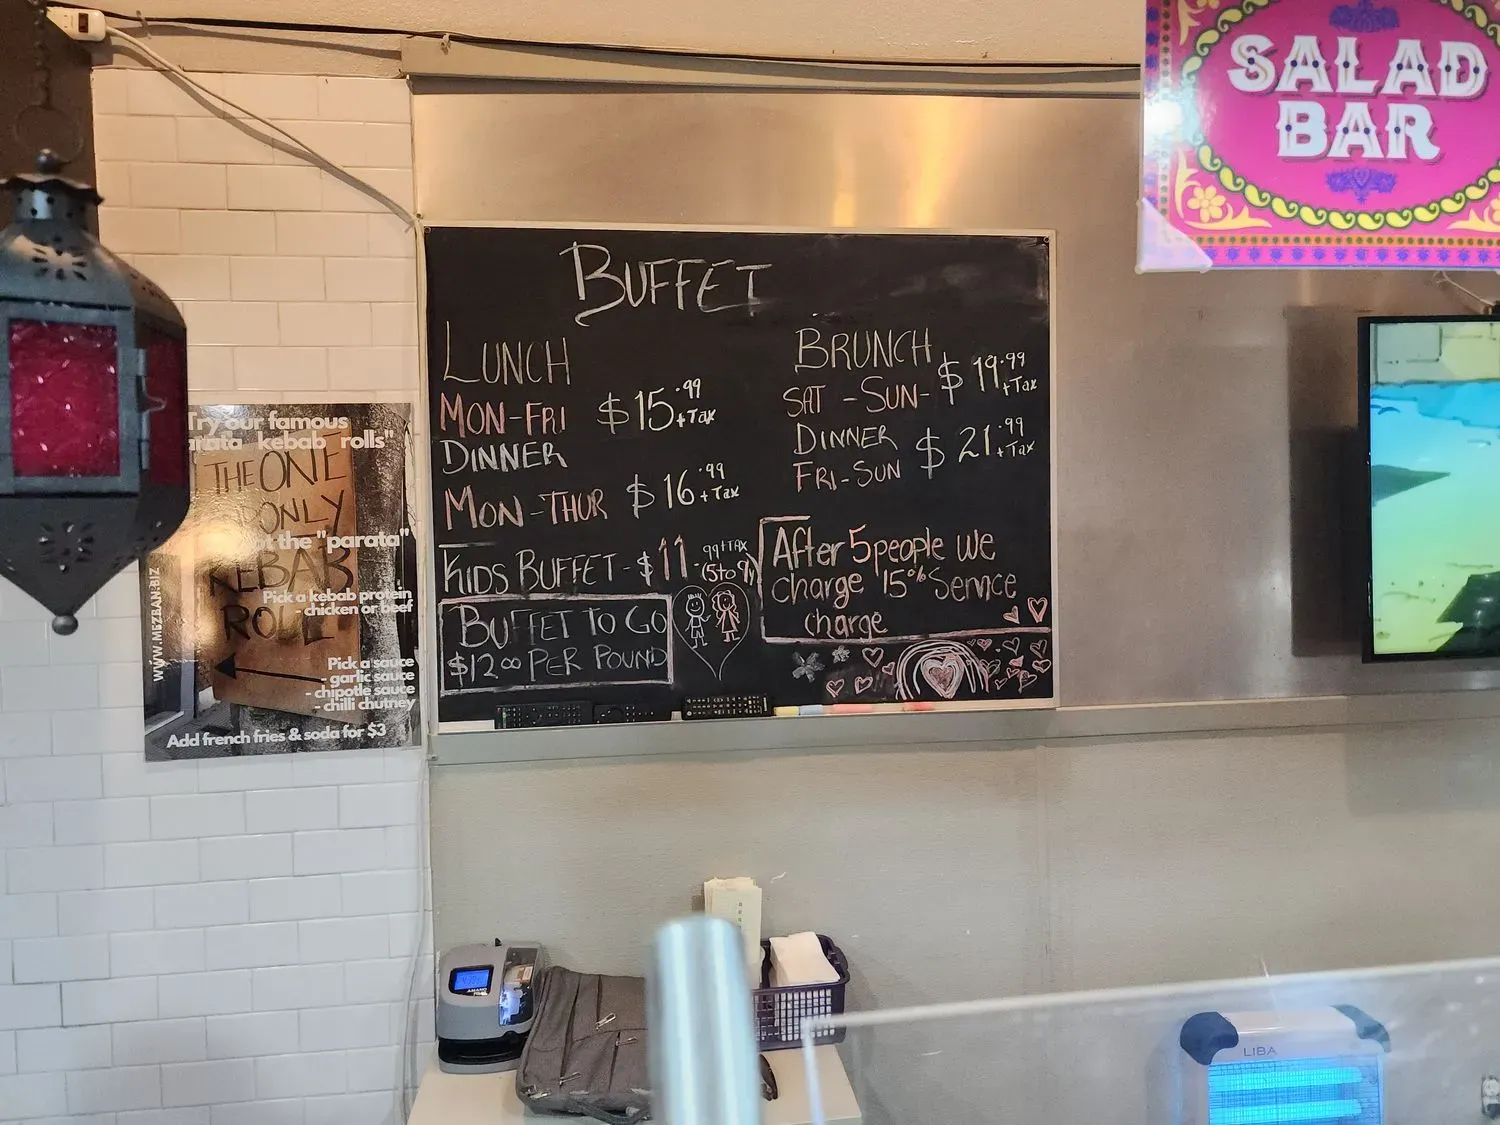 SALAD
BAR
BUFFET
LUNCH
MON-FRI $15.99 +Tax
DINNER
MON-THUR $16.99 +Tax
KIDS BUFFET-$11.99+TAX
(5to9y
BUFFET TO GO
$12.00 PER POUND
BRUNCH
SAT-SUN- $19.99 +Tax
DINNER
FRI-SUN $21.99 +Tax
After 5 people we
charge 15% Service
charge
Try our famous
kebab rolls"
THE ONE
ONLY
the "parata"
KEBAB
Pick a kebab protein
- chicken or beef
ROLL
Pick a sauce
- garlic sauce
- chipotle sauce
- chilli chutney
Add french fries & soda for $3
WWW.MEZBAN.BIZ
AMANO
LIBA